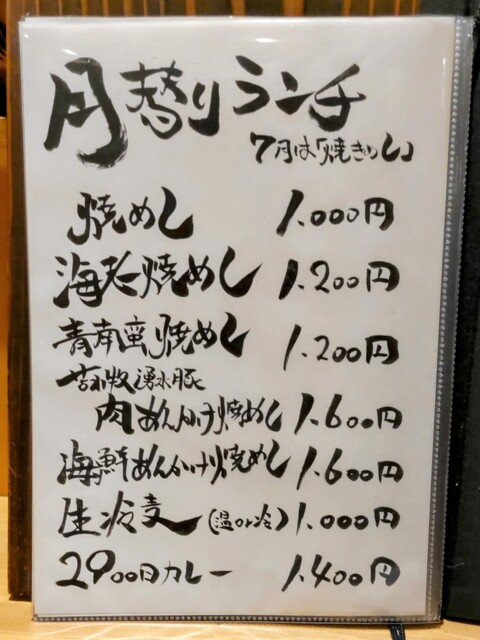 月替りランチ
7月は「焼きめし」
焼めし 1.000円
海老焼めし 1.200円
青南蛮焼めし 1.200円
苫小牧湧水豚
肉あんかけ焼めし 1.600円
海鮮あんかけ焼めし 1.600円
生冷麦 (温or冷) 1.000円
2900日カレー 1.400円